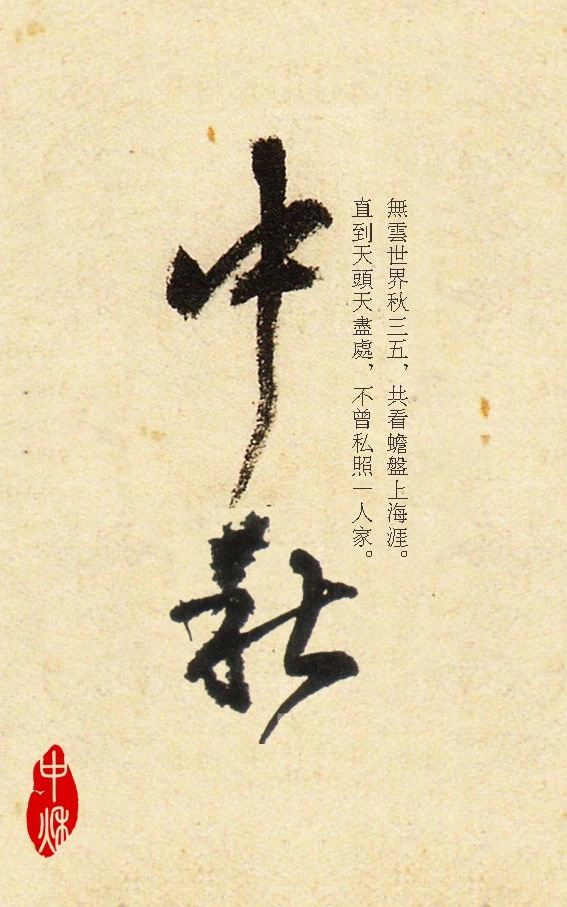 無雲世界秋三五，共看蟾盤上海涯。
直到天頭天盡處，不曾私照一人家。
中秋
中秋